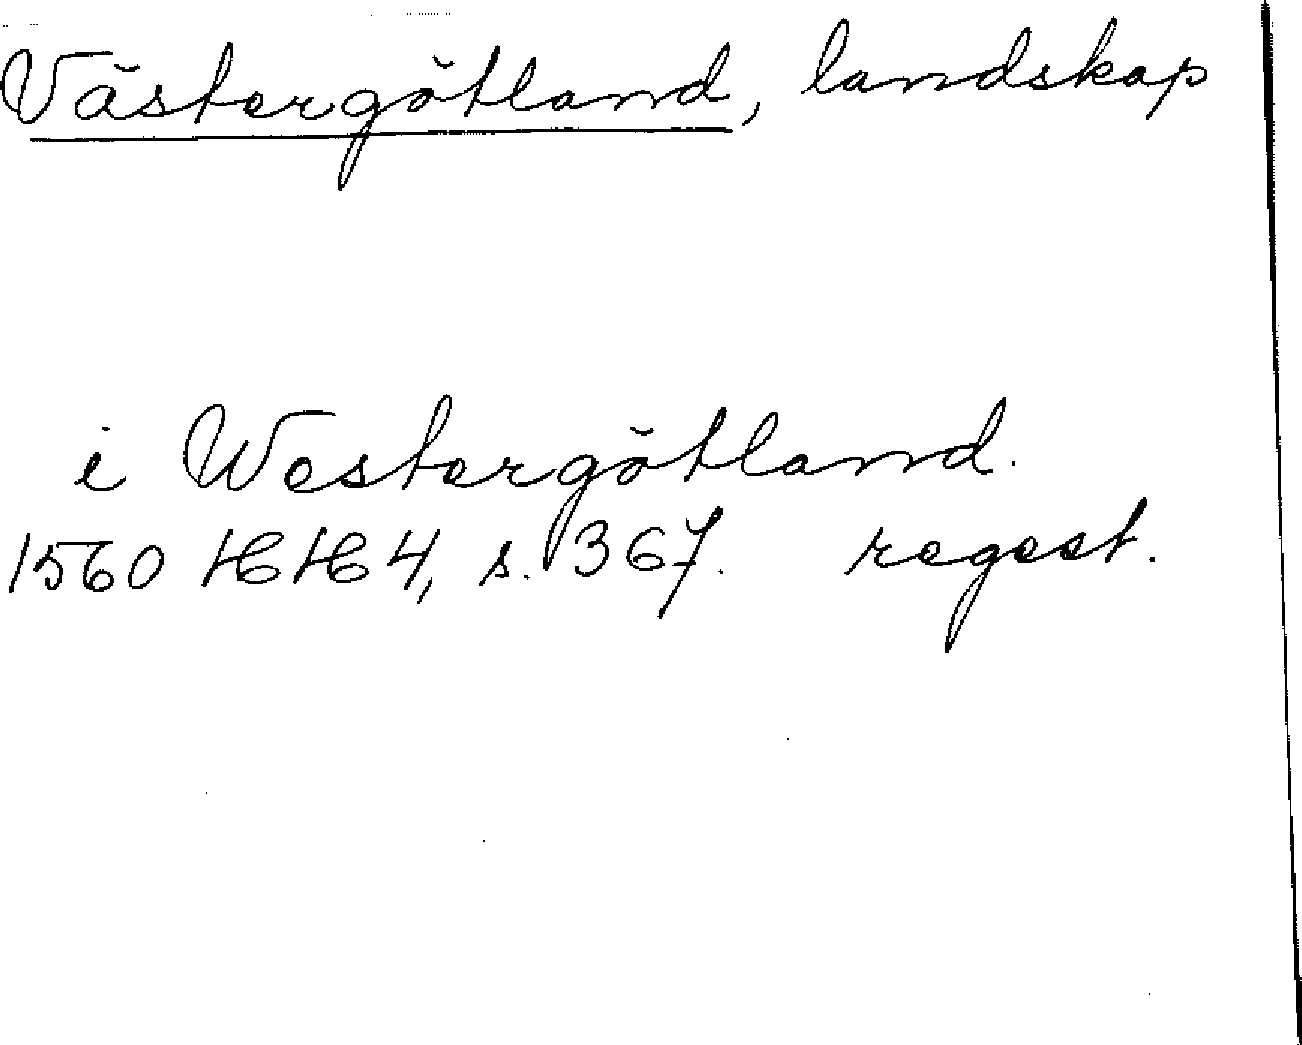 Västergötland, landskap
i Westergötland.
1560 HH 4, s. 367. regest.